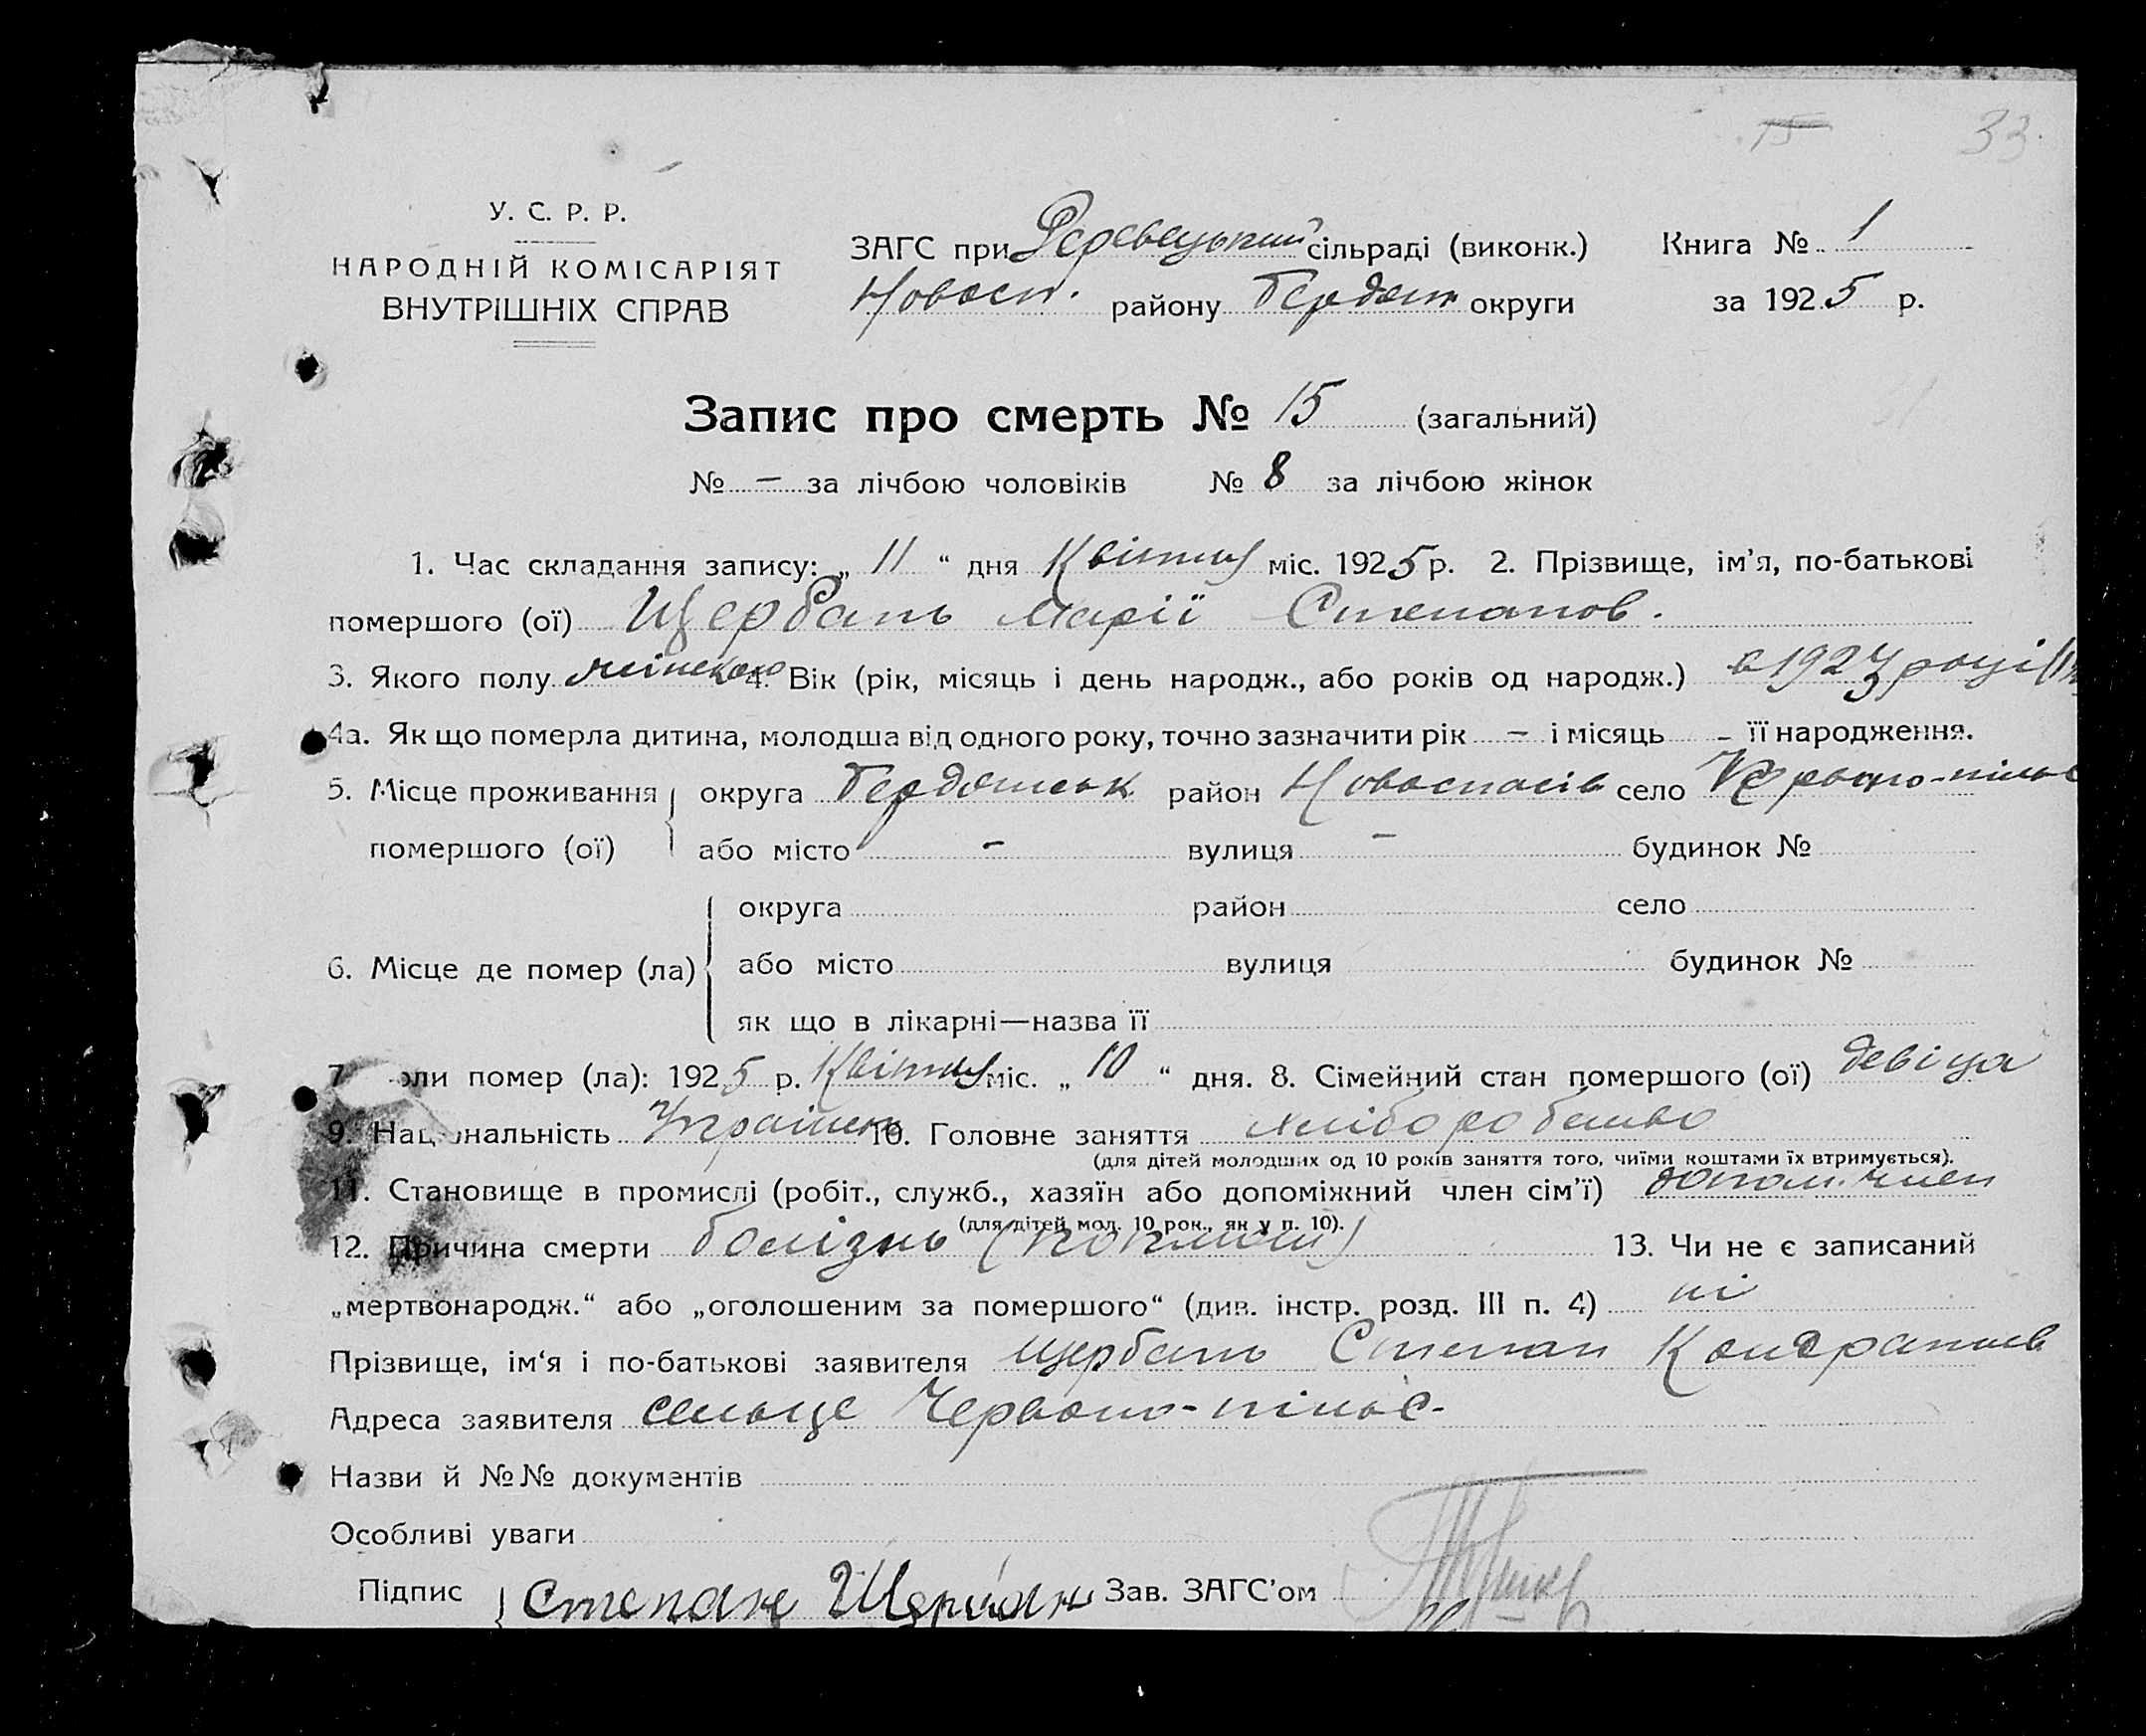 15 33.
У. С. Р. Р.
НАРОДНІЙ КОМІСАРІЯТ
ВНУТРІШНІХ СПРАВ
ЗАГС при сільраді (виконк.)
Новосп. району Бердян округи
Книга № 1
за 1925 р.
Запис про смерть № 15 (загальний)
№ – за лічбою чоловіків № 8 за лічбою жінок
1. Час складання запису: „ 11 “ дня Квітня міс. 1925 р. 2. Прізвище, ім’я, по-батькові
помершого (ої) Щербань Марії Степанов.
3. Якого полу жіноказо 4. Вік (рік, місяць і день народж., або років од народж.) в 1923 році
4а. Як що померла дитина, молодша від одного року, точно зазначити рік – і місяць – її народження.
5. Місце проживання округа Бердянськ район Новоспасів село Червоно-пільє
помершого (ої) або місто – вулиця – будинок №
округа район село
6. Місце де помер (ла) або місто вулиця будинок №
як що в лікарні—назва її
7. оли помер (ла): 1925 р. Квітня міс. „ 10 “ дня. 8. Сімейний стан помершого (ої) девіца
9. Національність Украінка 10. Головне заняття хліборобство
(для дітей молодших од 10 років заняття того, чиїми коштами їх втримується).
11. Становище в промислі (робіт., служб., хазяїн або допоміжний член сім’ї) допом. член
(для дітей мол. 10 рок., як у п. 10).
12. Причина смерти болізнь 13. Чи не є записаний
„мертвонародж.“ або „оголошеним за помершого“ (див. інстр. розд. III п. 4) ні
Прізвище, ім‘я і по-батькові заявителя Щербань Степан Кондратьев
Адреса заявителя сельце Червоно-пільє-
Назви й №№ документів
Особливі уваги
Підпис Степан Щербан Зав. ЗАГС’ом